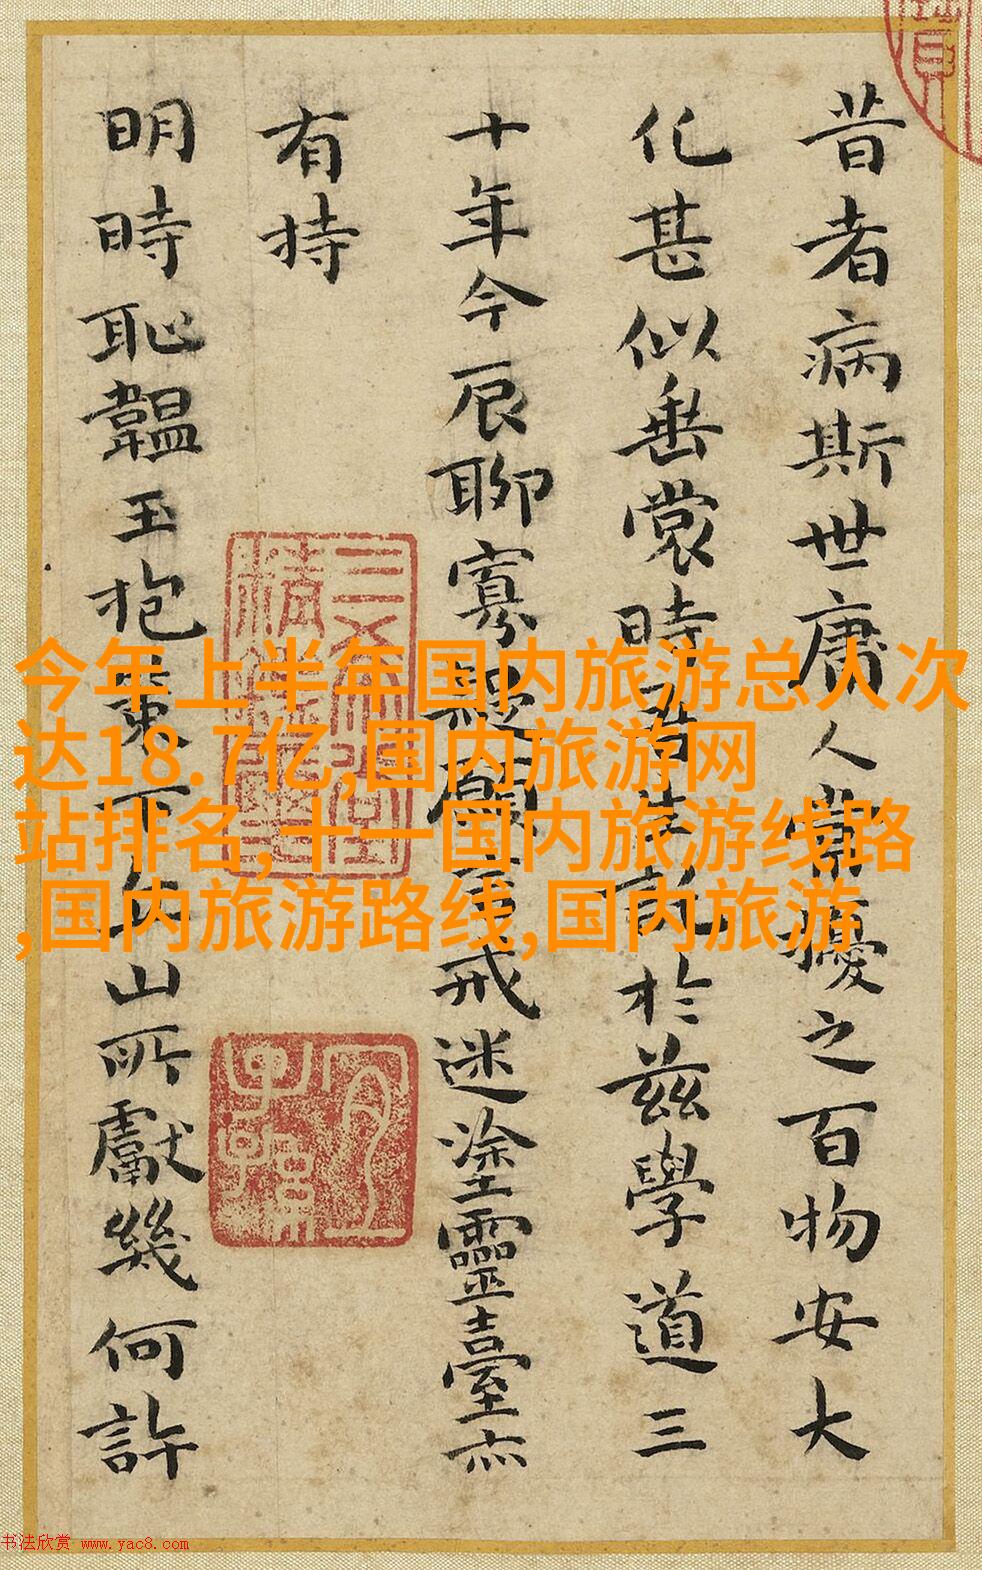 昔者病斯世庸人常擾之百物安大
化甚似垂裳時託於茲學道三
十年今辰聊寡願言戒迷塗靈臺亦
有持
明時恥韞玉抱下山所獻幾何許
三希堂
精鑑璽
宜
子孫
今年上半年国内旅游总人次
达18.7亿,国内旅游网
站排名,十一国内旅游线路
,国内旅游路线,国内旅游
书法欣赏 www.yac8.com